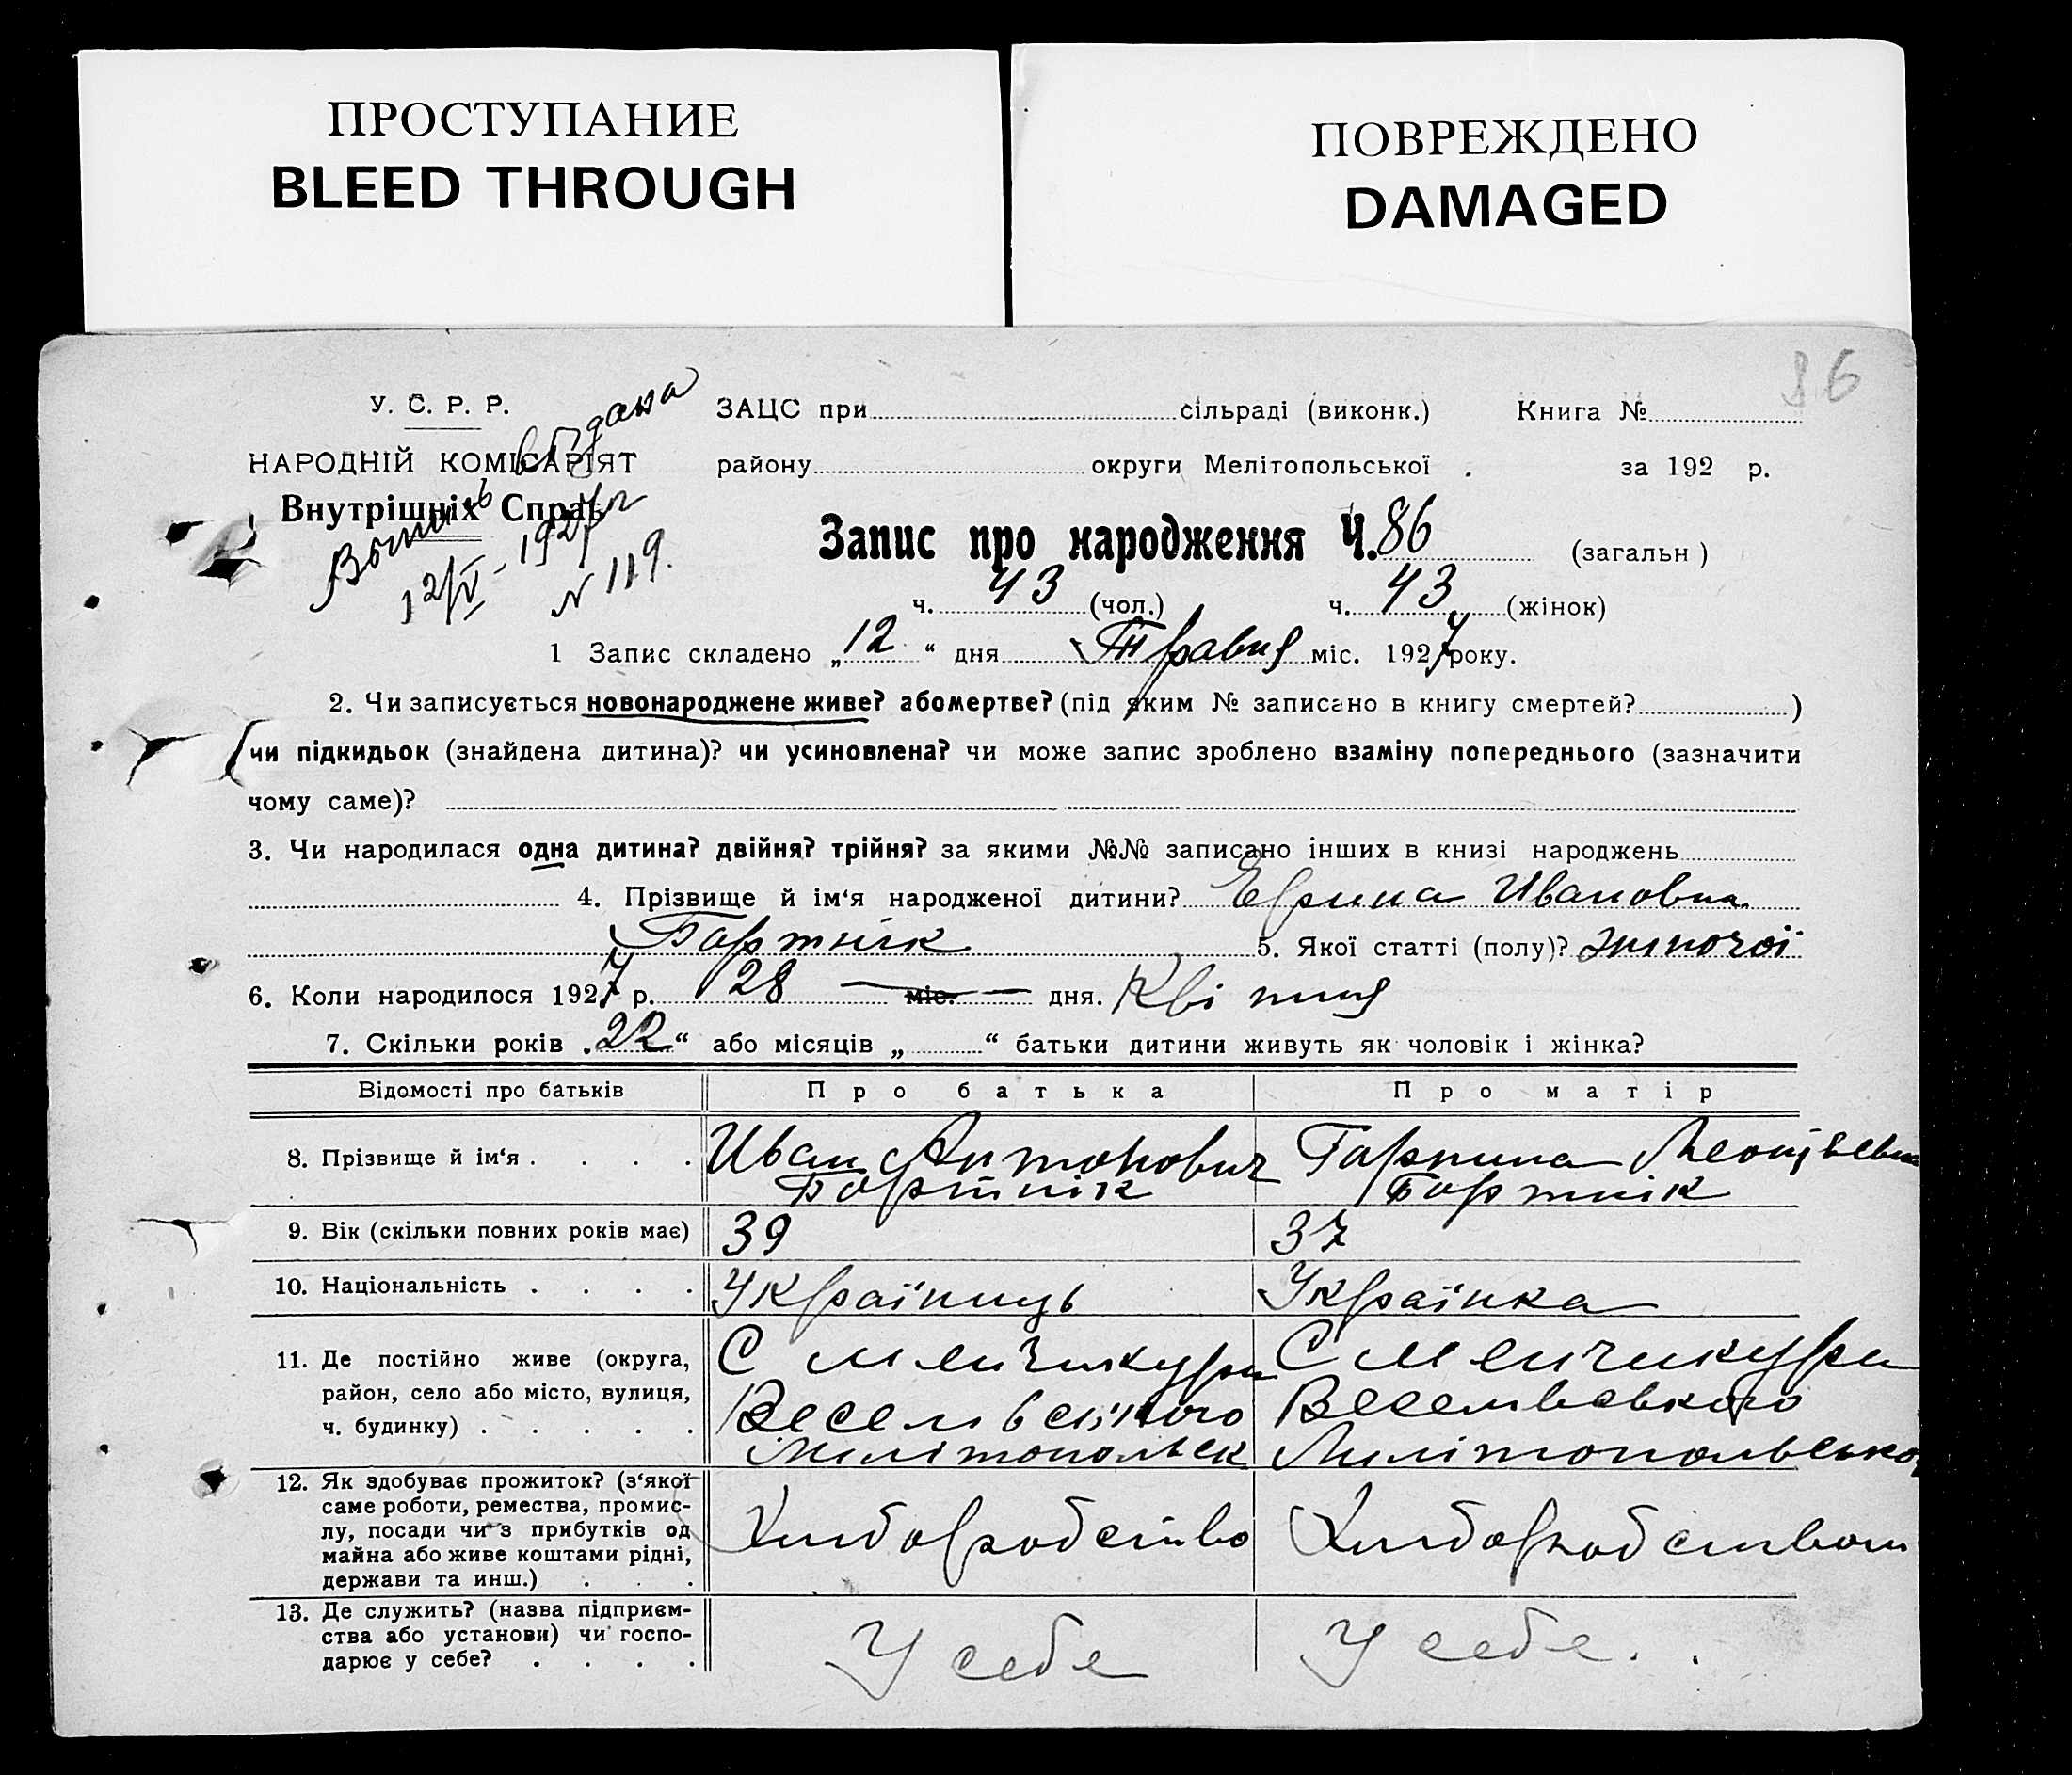 ПРОСТУПАНИЕ
BLEED THROUGH
ПОВРЕЖДЕНО
DAMAGED
86
У. С. Р. Р.
НАРОДНІЙ КОМІСАРІЯТ
Внутрішніх Справ
видана
12/V - 1927 г
N 119.
ЗАЦС при сільраді (виконк.) Книга №
району округи Мелітопольської . за 192 р.
Запис про народження Ч. 86 (загальн )
ч. 43 (чол.) ч. 43 (жінок)
1 Запис складено „ 12 “ дня Травня міс. 1927 року.
2. Чи записується новонароджене живе? або мертве? (під яким № записано в книгу смертей? )
чи підкидьок (знайдена дитина)? чи усиновлена? чи може запис зроблено взаміну попереднього (зазначити
чому саме)?
3. Чи народилася одна дитина? двійня? трійня? за якими №№ записано інших в книзі народжень
4. Прізвище й ім‘я народженої дитини? Ерина Ивановна
Бортнік 5. Якої статті (полу)? жіночої
6. Коли народилося 1927 р. 28 міс. дня. Квітня
7. Скільки років „ 22 “ або місяців „ “ батьки дитини живуть як чоловік і жінка?
Відомості про батьків Про батька Про матір
8. Прізвище й ім‘я . . . . Иван Антонович Гарпина
Бортнік Бортнік
9. Вік (скільки повних років має) 39 37
10. Національність . . . . Українець Українка
11. Де постійно живе (округа, С Менчикури С Менчикури
район, село або місто, вулиця, Веселівського Веселівського
ч. будинку) . . . . . Мелітопольск Мелітопольсько
12. Як здобуває прожиток? (з‘якої
саме роботи, ремества, промис-
лу, посади чи з прибутків од Хліборобство Хліборобством
майна або живе коштами рідні,
держави та инш.) . . .
13. Де служить? (назва підприєм-
ства або установи) чи госпо- У себе У себе.
дарює у себе? . . . .